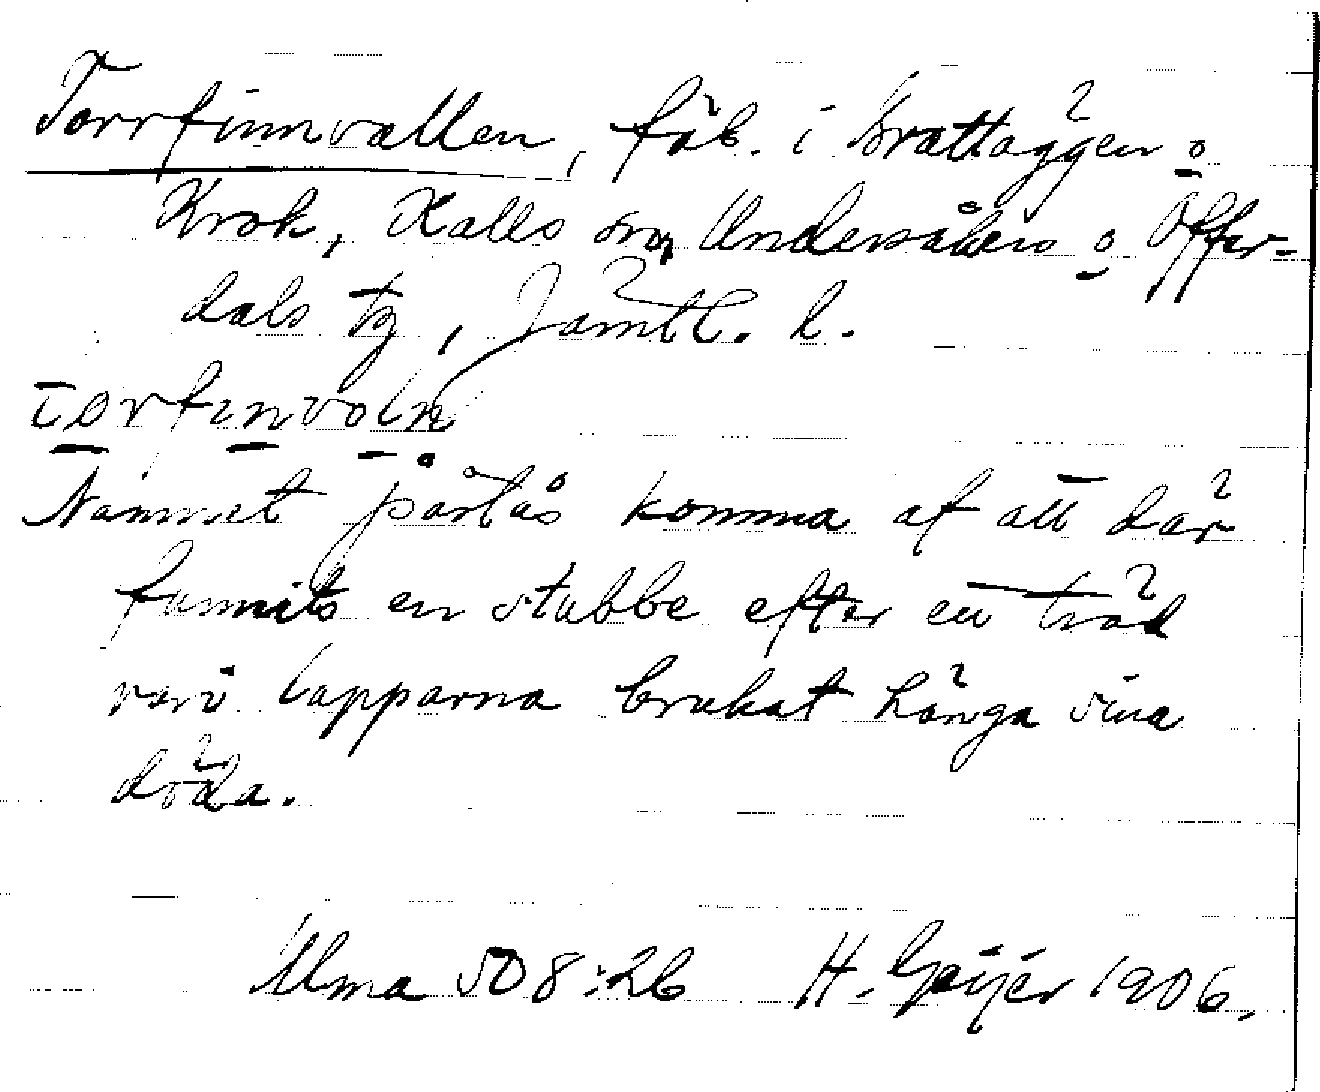 Torrfinnvallen, fäb. i Brattäggen o
Krok, Kalls sn, Undersåkers o Offer-
dals tg, Jämtl. l.
torfinvoln
Namnet påstås komma af att där
funnits en stubbe efter ett träd
vari lapparna brukat hänga sina
döda.
Ulma 508:26 H. Geijer 1906.